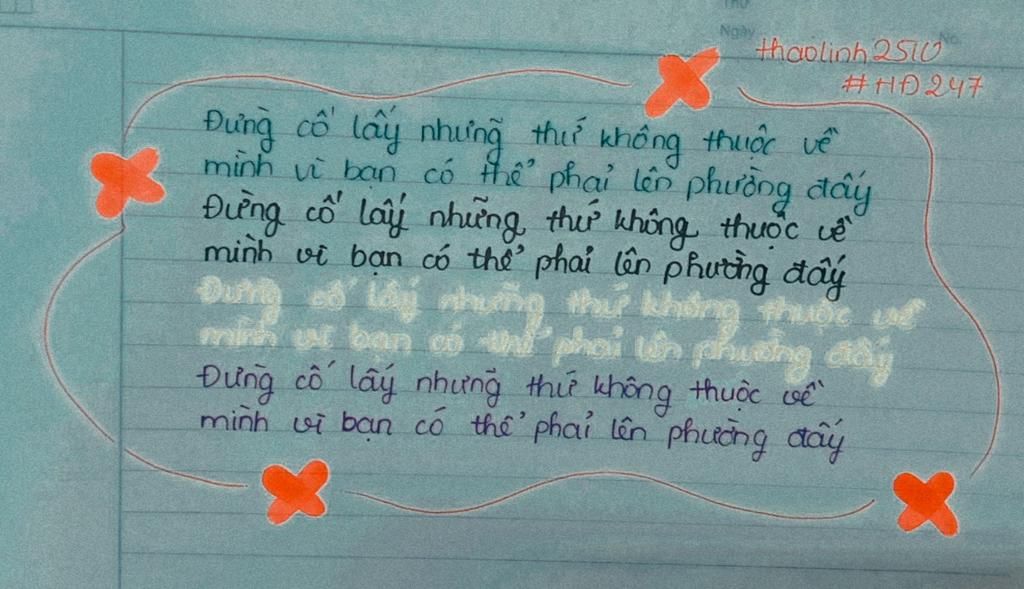 Thứ
Ngày
No.
thaolinh2510
#HĐ247
Đừng cố lấy những thứ không thuộc về
mình vì bạn có thể phải lên phường đấy
Đừng cố lấy những thứ không thuộc về
mình vì bạn có thể phải lên phường đấy
Đừng cố lấy những thứ không thuộc về
mình vì bạn có thể phải lên phường đấy
Đừng cố lấy những thứ không thuộc về
mình vì bạn có thể phải lên phường đấy